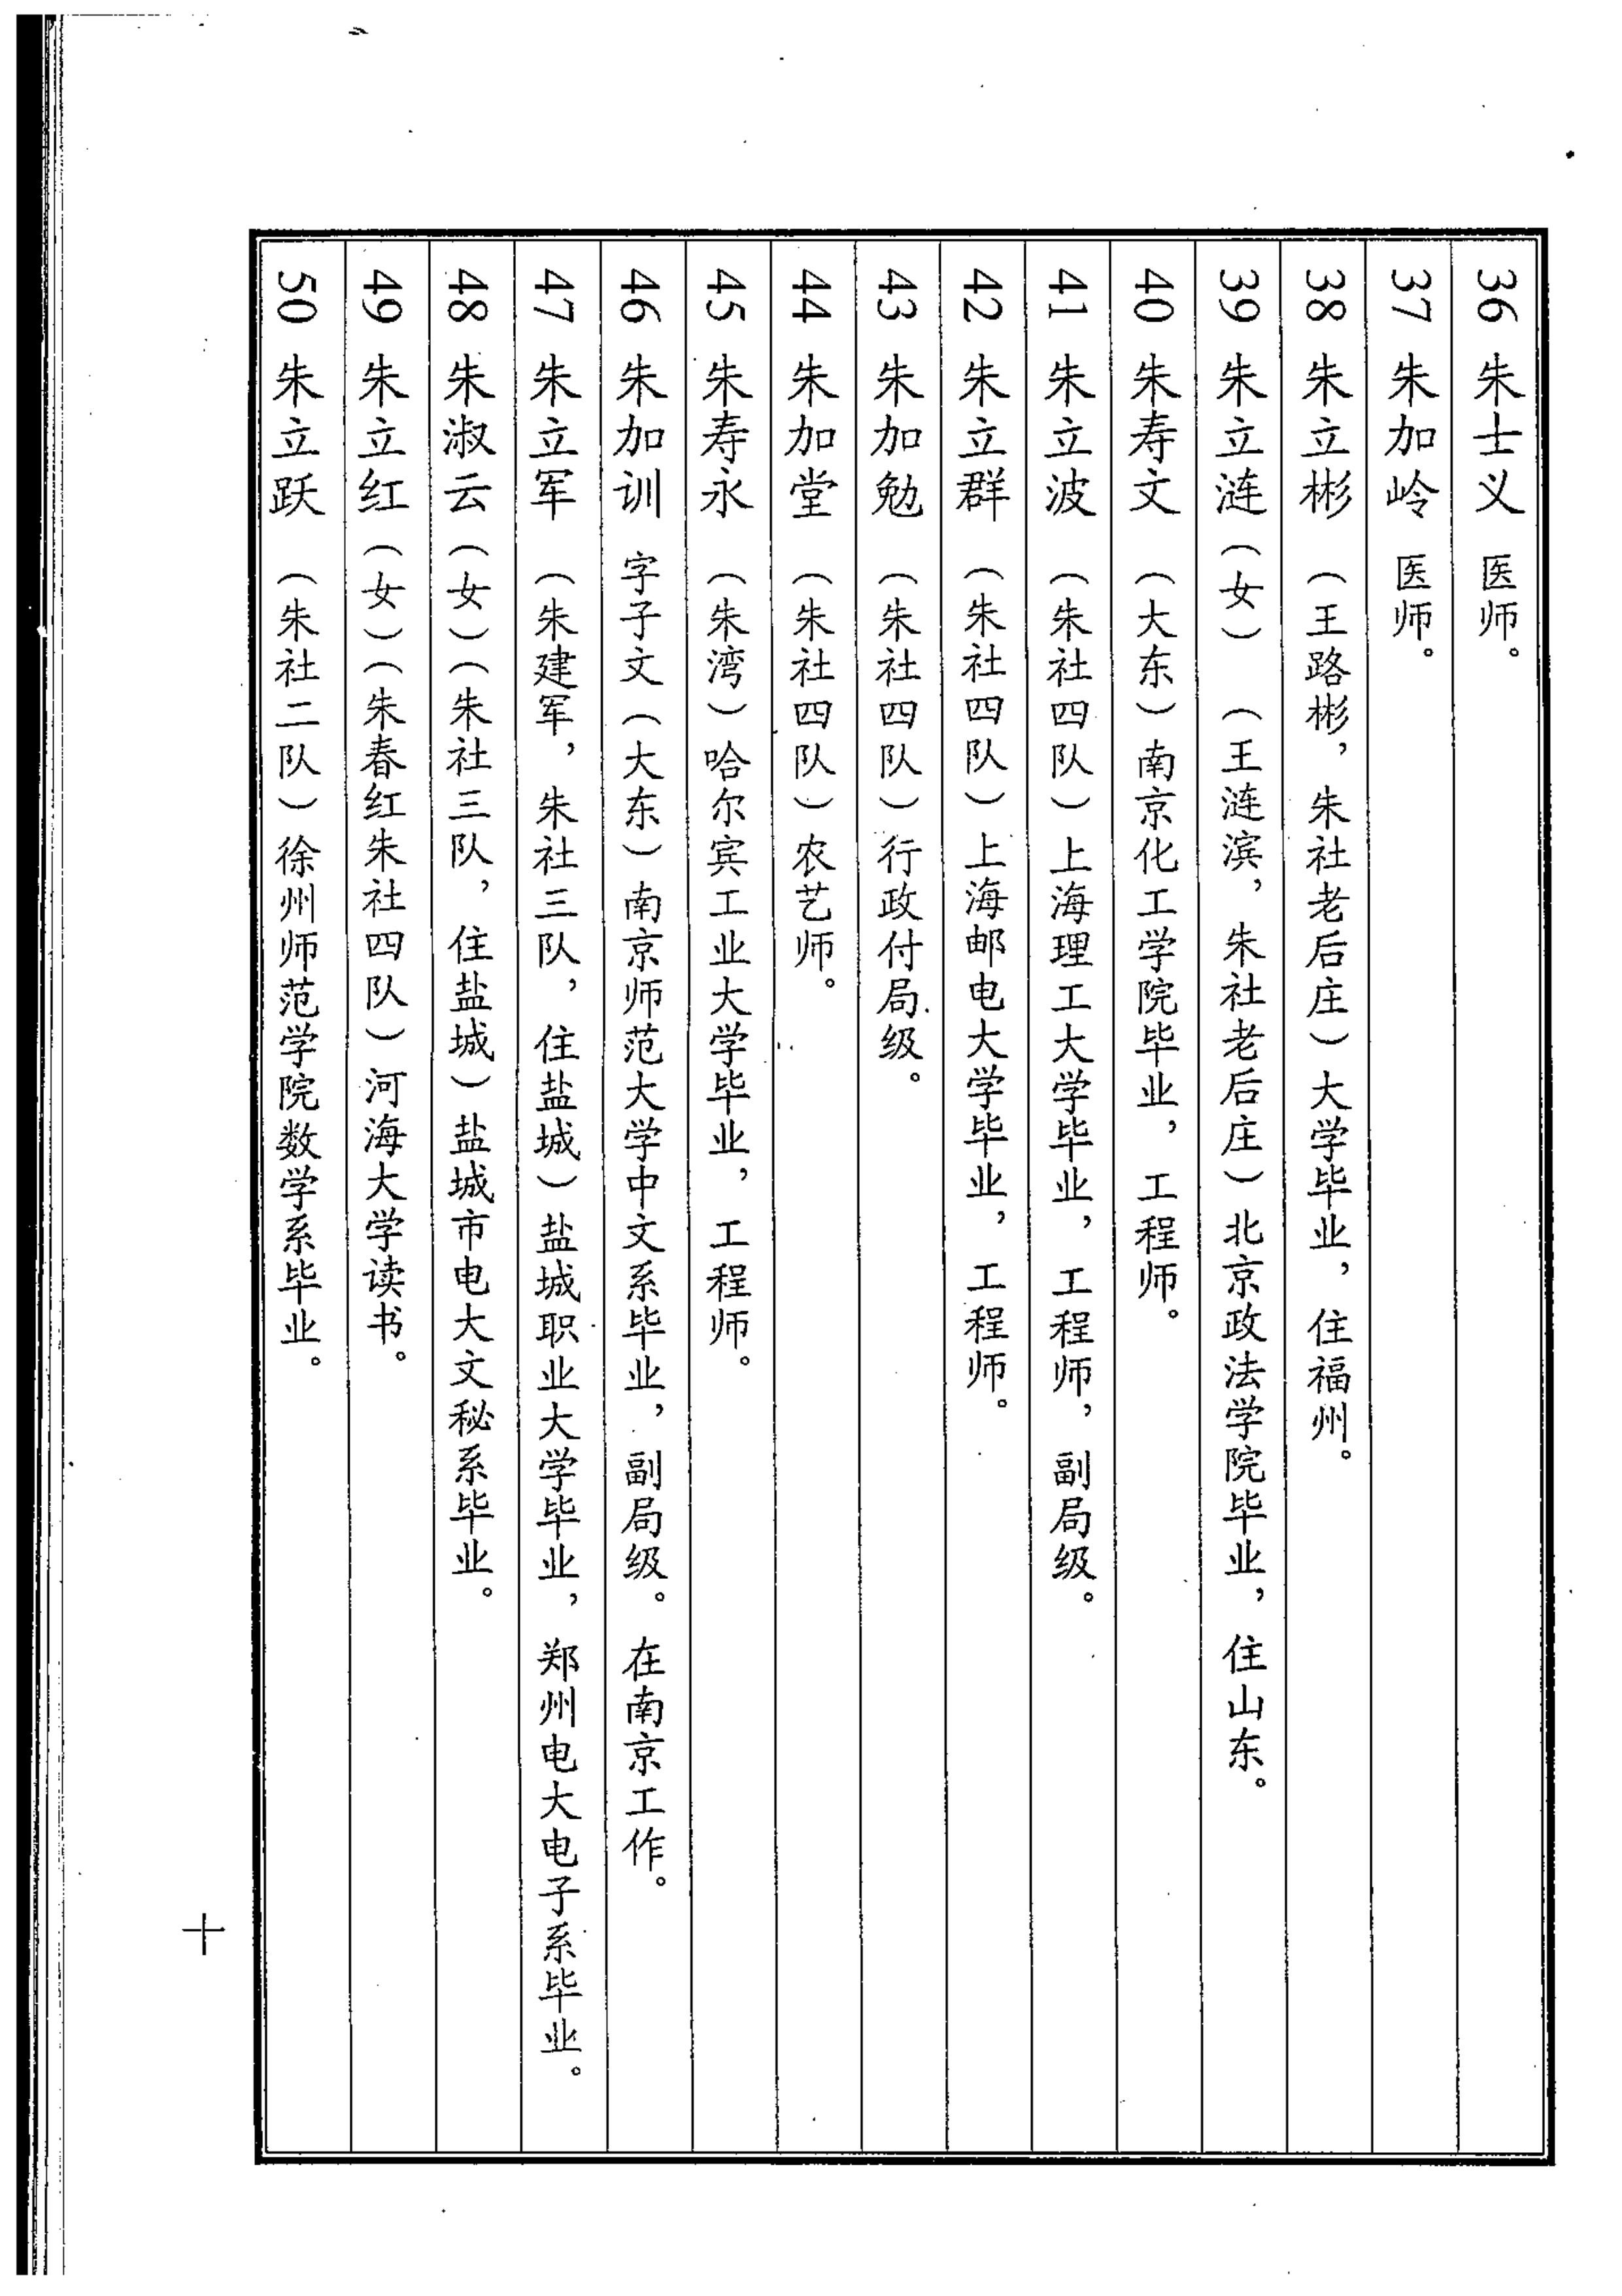 36 朱士义 医师。
37 朱加岭 医师。
38 朱立彬（王路彬，朱社老后庄）大学毕业，住福州。
39 朱立涟（女）（王涟滨，朱社老后庄）北京政法学院毕业，住山东。
40 朱寿文（大东）南京化工学院毕业，工程师。
41 朱立波（朱社四队）上海理工大学毕业，工程师，副局级。
42 朱立群（朱社四队）上海邮电大学毕业，工程师。
43 朱加勉（朱社四队）行政付局级。
44 朱加堂（朱社四队）农艺师。
45 朱寿永（朱湾）哈尔宾工业大学毕业，工程师。
46 朱加训 字子文（大东）南京师范大学中文系毕业，副局级。在南京工作。
47 朱立军（朱建军，朱社三队，住盐城）盐城职业大学毕业，郑州电大电子系毕业。
48 朱淑云（女）（朱社三队，住盐城）盐城市电大文秘系毕业。
49 朱立红（女）（朱春红朱社四队）河海大学读书。
50 朱立跃（朱社二队）徐州师范学院数学系毕业。
十